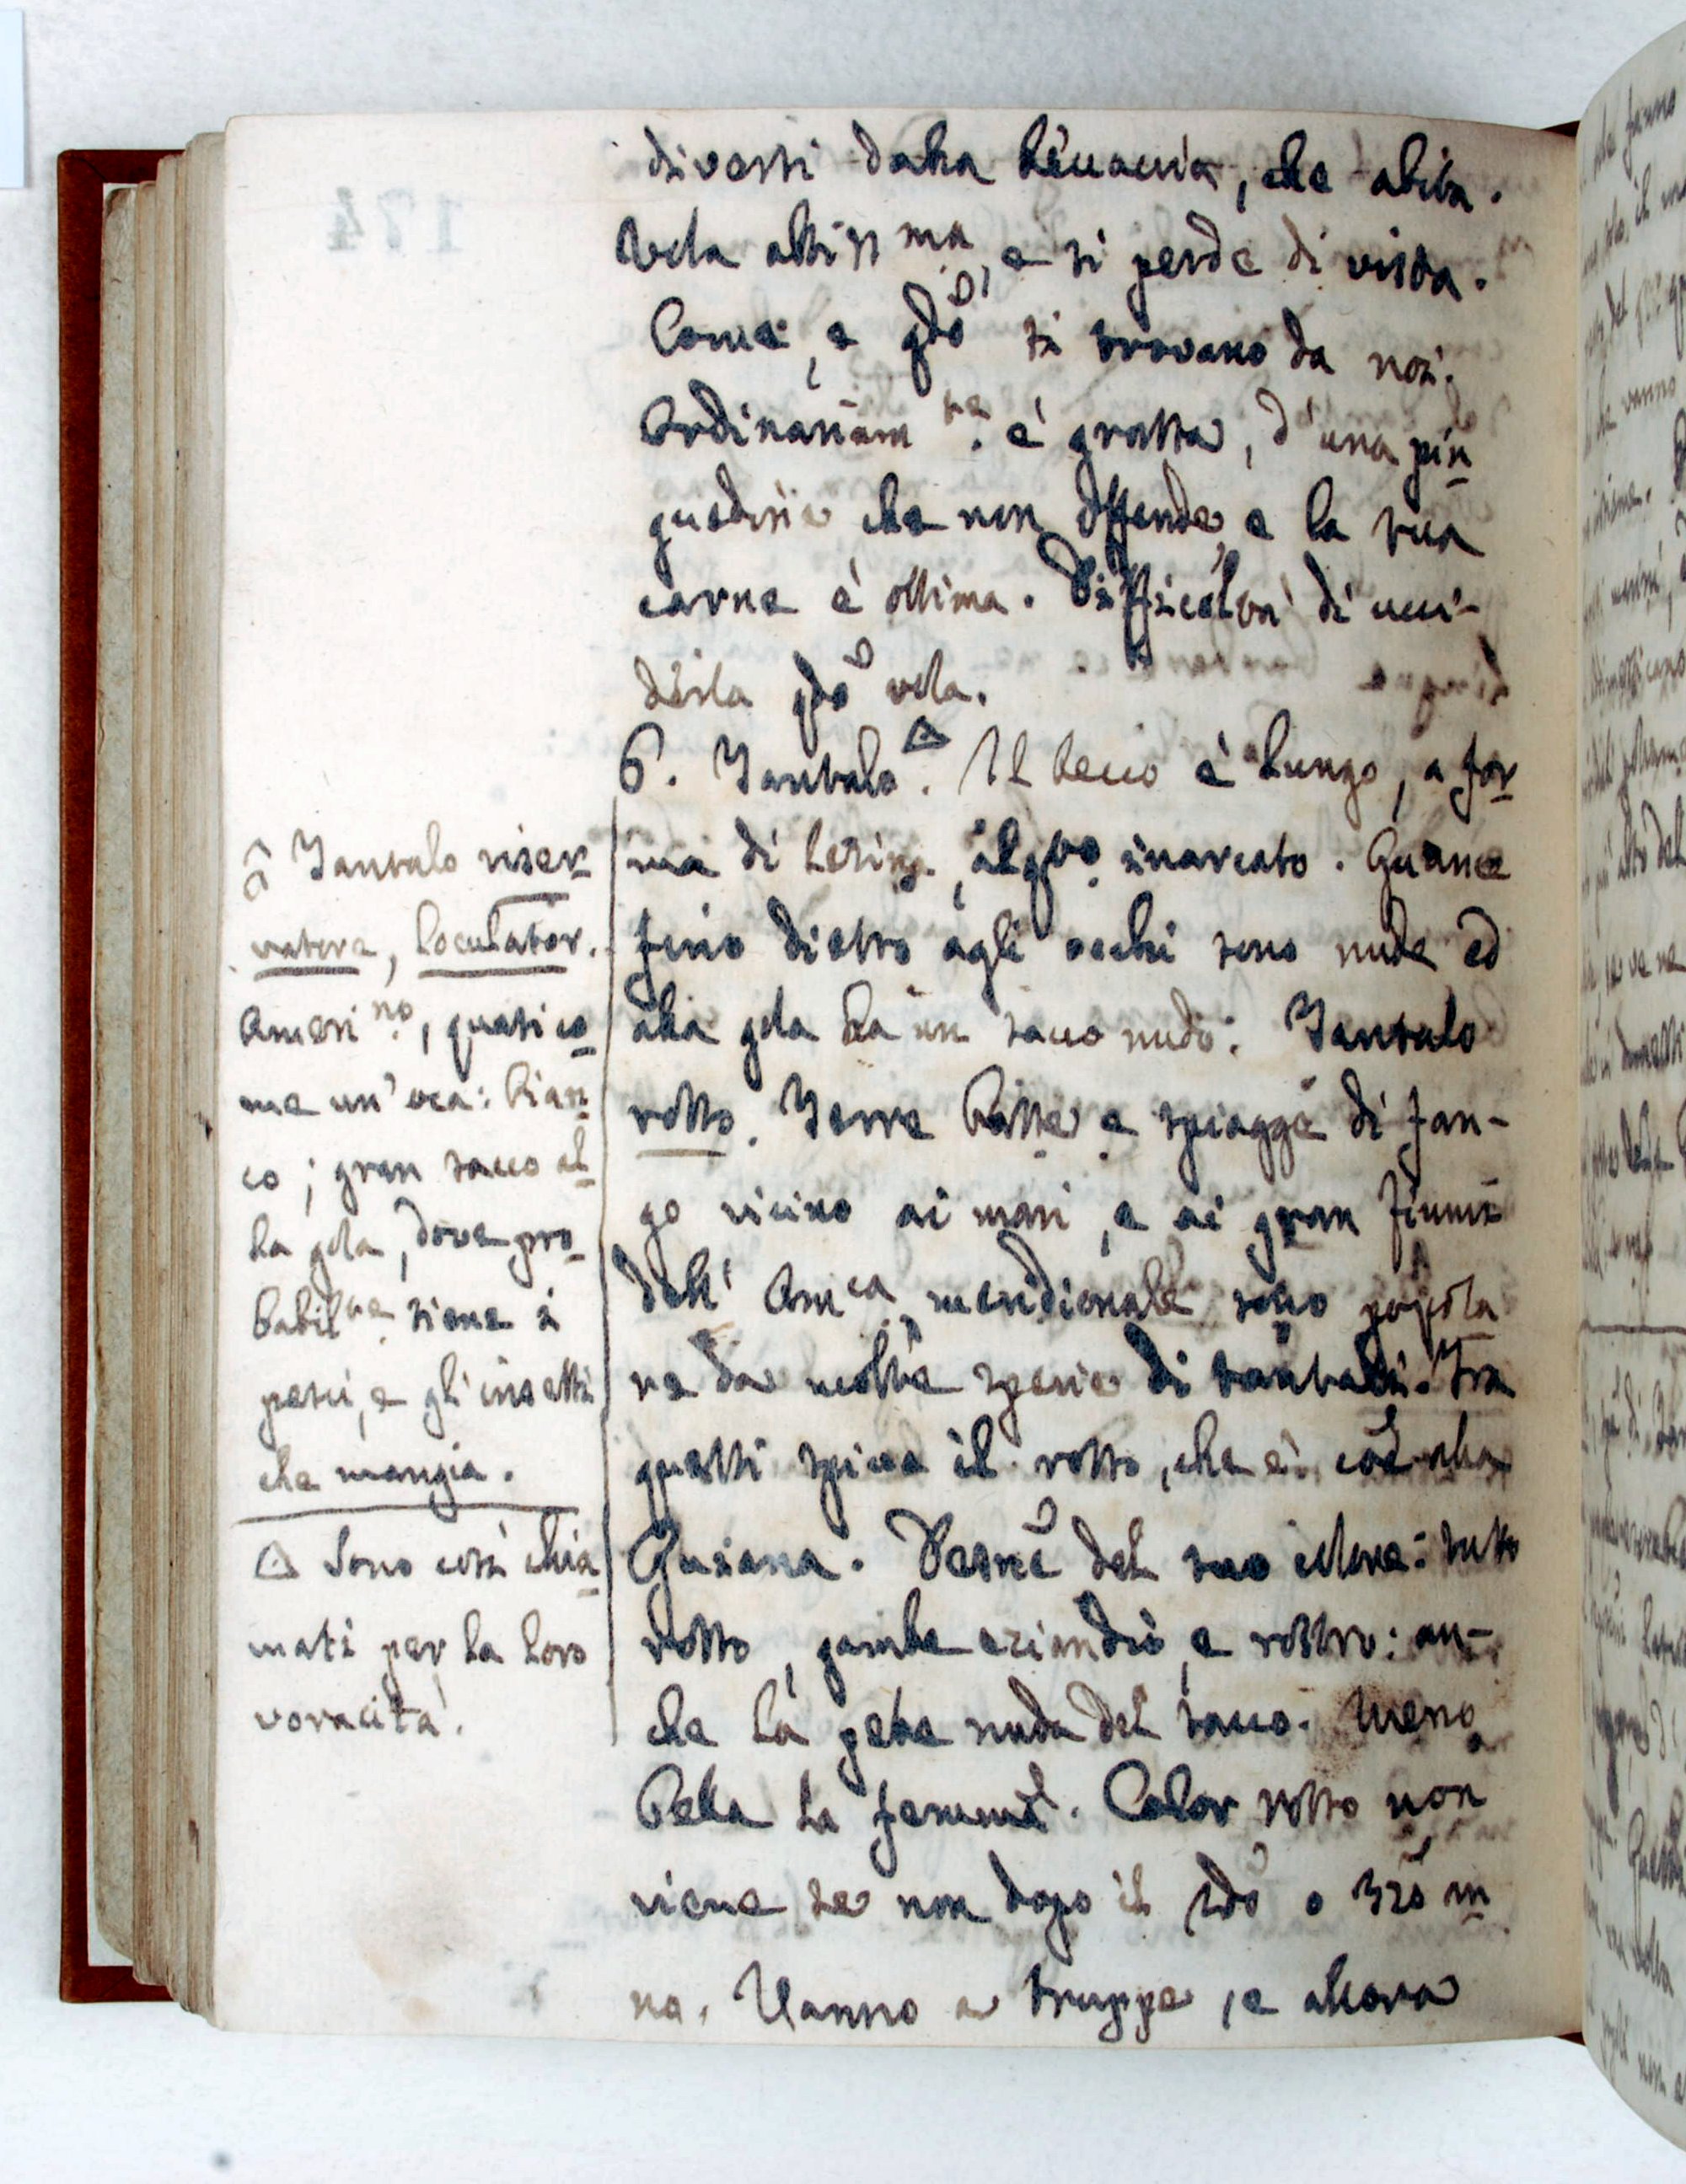 diversi dalla beccaccia, che abita.
Vola altiss ma, e si perde di vista.
Come, e qdo si trovano da noi.
Ordinariam te. è grassa, d'una pin
guedine che non offende, e la sua
carne è ottima. Difficoltà di ucci-
derla qdo vola.
6. Tantalo △. Il becco è lungo, a for
ma di lesina, alqto inarcato. Guance
fino dietro agli occhi sono nude ed
alla gola ha un sacco nudo. Tantalo
rosso. Terre basse e spiagge di fan-
go vicino ai mari, e ai gran fiumi
dell' Amca meridionale sono popola
te da molte specie di tantali. Tra
questi spicca il rosso, che è alla
Guiana. del suo colore: tutto
rosso, gambe eziandio, e rostro: an-
che la pelle nuda del sacco. Meno
bella la femina. Color rosso non
viene se non dopo il 2do o 3zo an
no. Vanno a truppe, e allora
Tantalo
, Loculator.
Ameri no, quasi co
me un'oca: bian
co; gran sacco al
la gola, dove pro
babil te tiene i
pesci, e gli insetti
che mangia.
△ Sono così chia
mati per la loro
voracità.
174